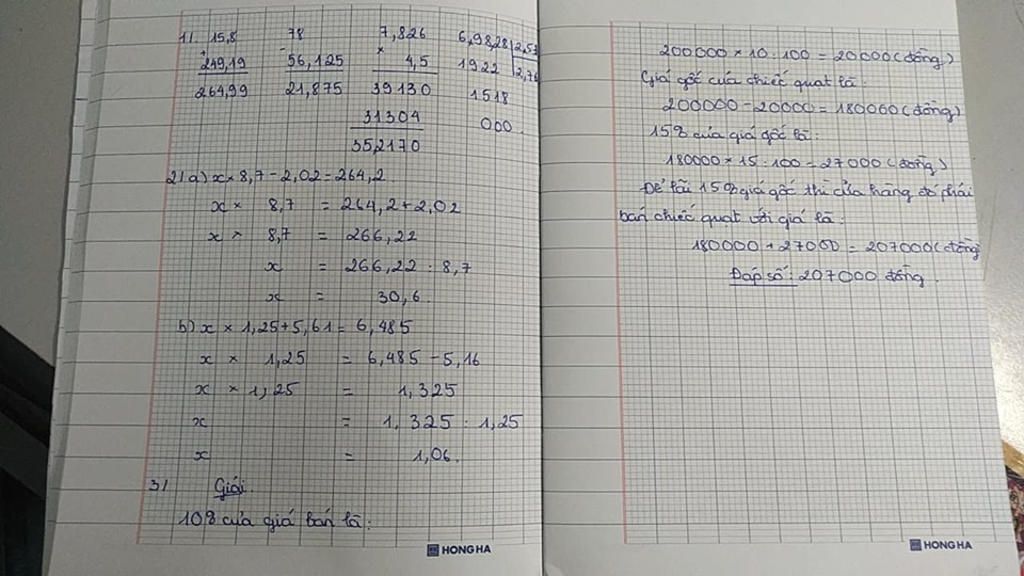 1). 15,8 78 7,826 6,98,28 | 2,53
+ - × 
249,19 56,125 4,5 1922 2,76
264,99 21,875 39130 1518
31304 000
35,2170
2) a) x × 8,7 - 2,02 = 264,2
x × 8,7 = 264,2 + 2,02
x × 8,7 = 266,22
x = 266,22 : 8,7
x = 30,6.
b) x × 1,25 + 5,61 = 6,485
x × 1,25 = 6,485 - 5,16
x × 1,25 = 1,325
x = 1,325 : 1,25
x = 1,06.
3) Giải.
10% của giá bán là:
HONG HA
200000 × 10 : 100 = 20000 (đồng)
Giá gốc của chiếc quạt là:
200000 - 20000 = 180000 (đồng)
15% của giá gốc là:
180000 × 15 : 100 = 27000 (đồng)
Để lãi 15% giá gốc thì cửa hàng đó phải
bán chiếc quạt với giá là:
180000 + 27000 = 207000 (đồng)
Đáp số: 207000 đồng.
HONG HA